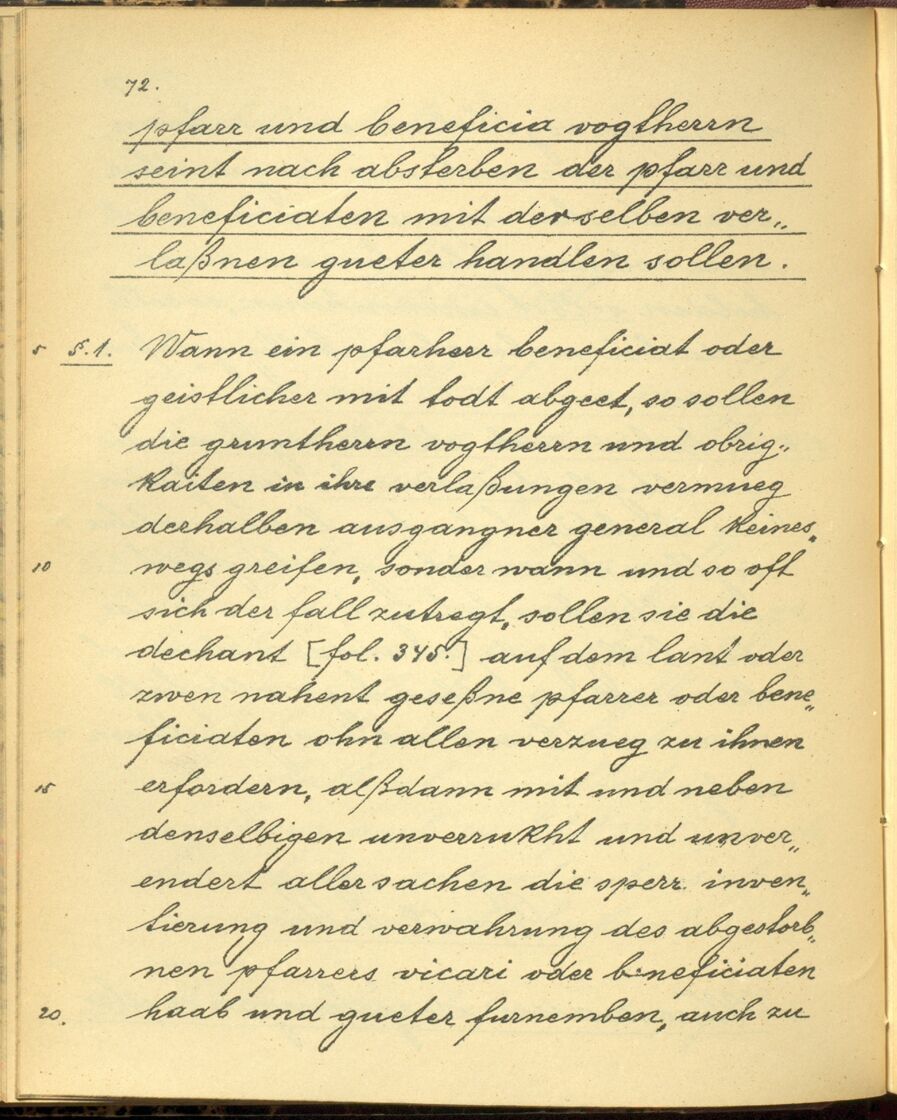 72.
pfarr und beneficia vogtherrn
seint nach absterben der pfarr und
beneficiaten mit derselben ver„
laßnen gueter handlen sollen.
5 §.1. Wann ein pfarherr beneficiat oder
geistlicher mit todt abgeet, so sollen
die gruntherrn vogtherrn und obrig„
kaiten in ihre verlaßungen vermueg
derhalben ausgangner general keines„
10 wegs greifen, sonder wann und so oft
sich der fall zutregt, sollen sie die
dechant [fol. 345.] auf dem lant oder
zwen nahent geseßne pfarrer oder bene„
ficiaten ohn allen verzueg zu ihnen
15 erfordern, alßdann mit und neben
denselbigen unverrukht und unver„
endert aller sachen die sperr inven„
tierung und verwahrung des abgestorb„
nen pfarrers vicari oder beneficiaten
20. haab und gueter furnemben, auch zu